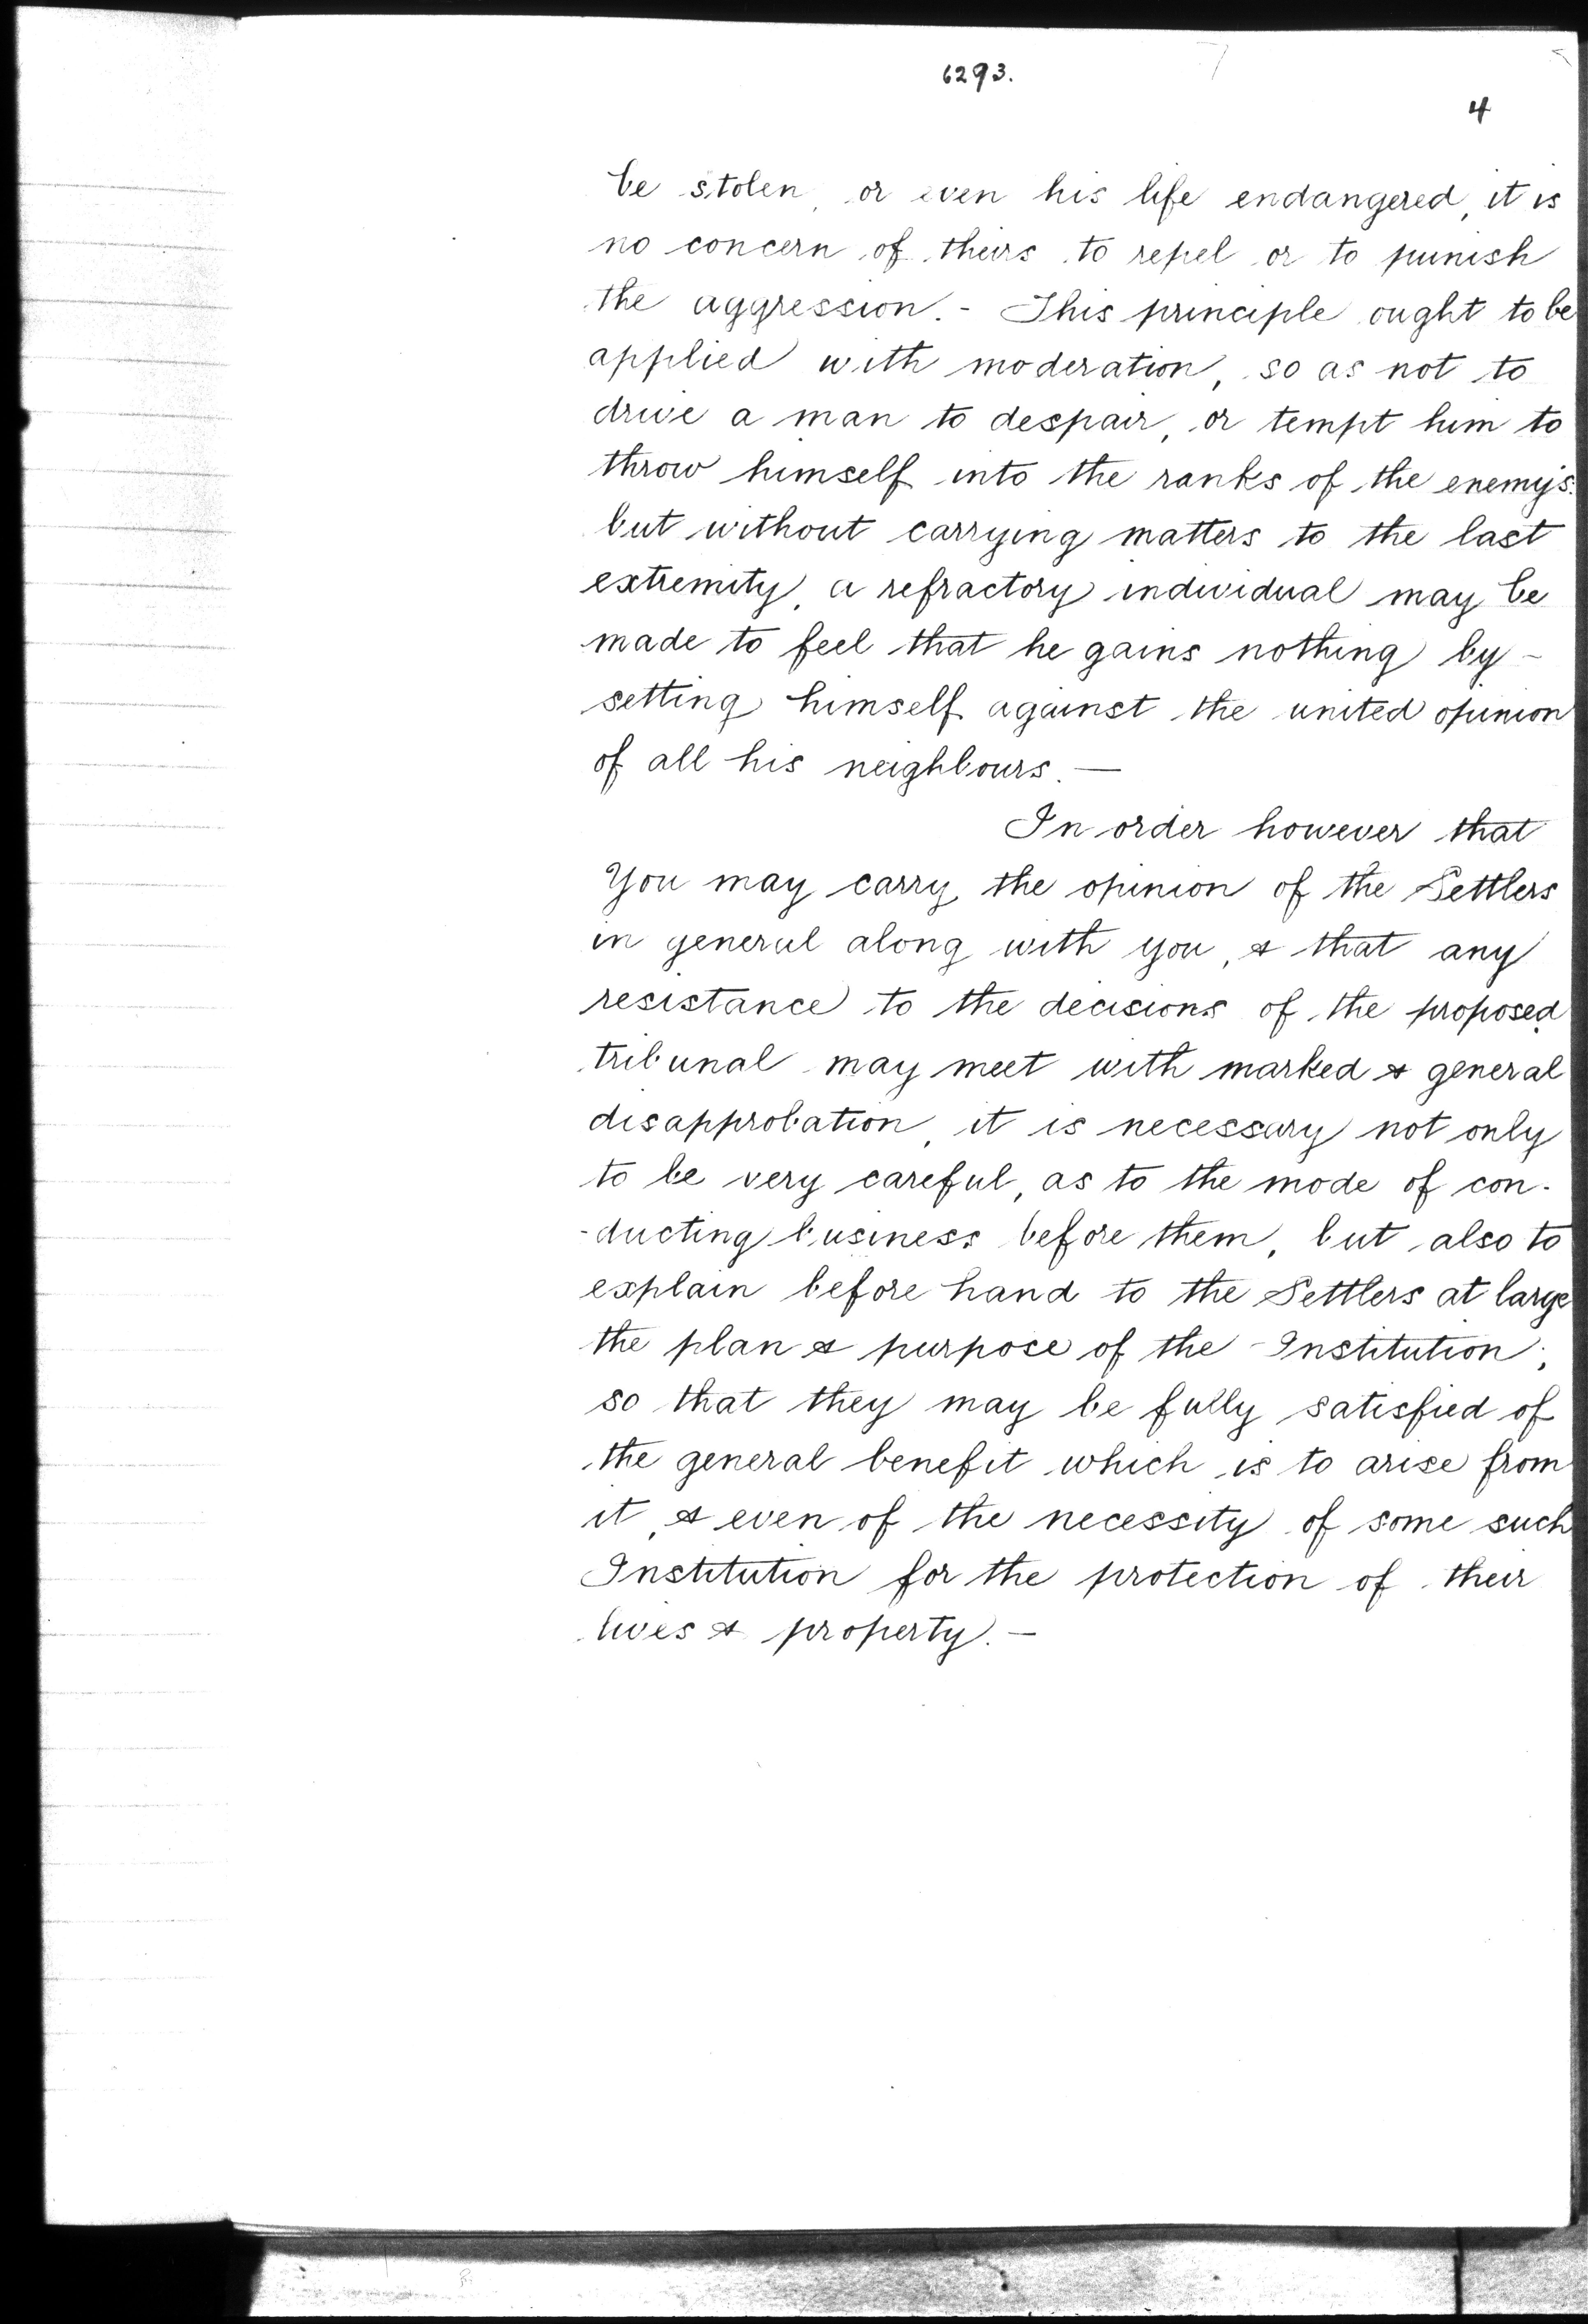 6293.
4
be stolen, or even his life endangered, it is
no concern of theirs to repel or to punish
the aggression. - This principle ought to be
applied with moderation, so as not to
drive a man to despair, or tempt him to
throw himself into the ranks of the enemy's:
but without carrying matters to the last
extremity, a refractory individual may be
made to feel that he gains nothing by -
setting himself against the united opinion
of all his neighbours. —
In order however that
You may carry the opinion of the Settlers
in general along with you, & that any
resistance to the decisions of the proposed
tribunal may meet with marked & general
disapprobation, it is necessary not only
to be very careful, as to the mode of con-
-ducting business before them, but also to
explain before hand to the Settlers at large
the plan & purpose of the Institution;
so that they may be fully satisfied of
the general benefit which is to arise from
it, & even of the necessity of some such
Institution for the protection of their
lives & property. —